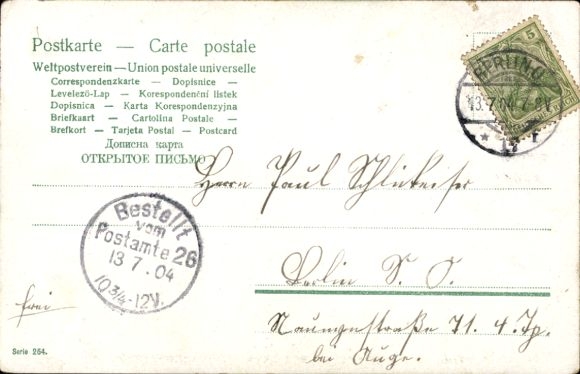 Postkarte — Carte postale
Weltpostverein — Union postale universelle
Correspondenzkarte — Dopisnice —
Levelező-Lap — Korespondenční lístek
Dopisnica — Karta Korespondenzyjna
Briefkaart — Cartolina Postale —
Brefkort — Tarjeta Postal — Postcard
Дописна карта
ОТКРЫТОЕ ПИСЬМО
5
BERLIN
13.7.04.7-8V.
Herrn Paul
Bestellt
vom
Postamte 26
13 7. 04
10 3/4-12V.
Berlin S. O.
frei
71. 4. Tp.
bei
Serie 264.